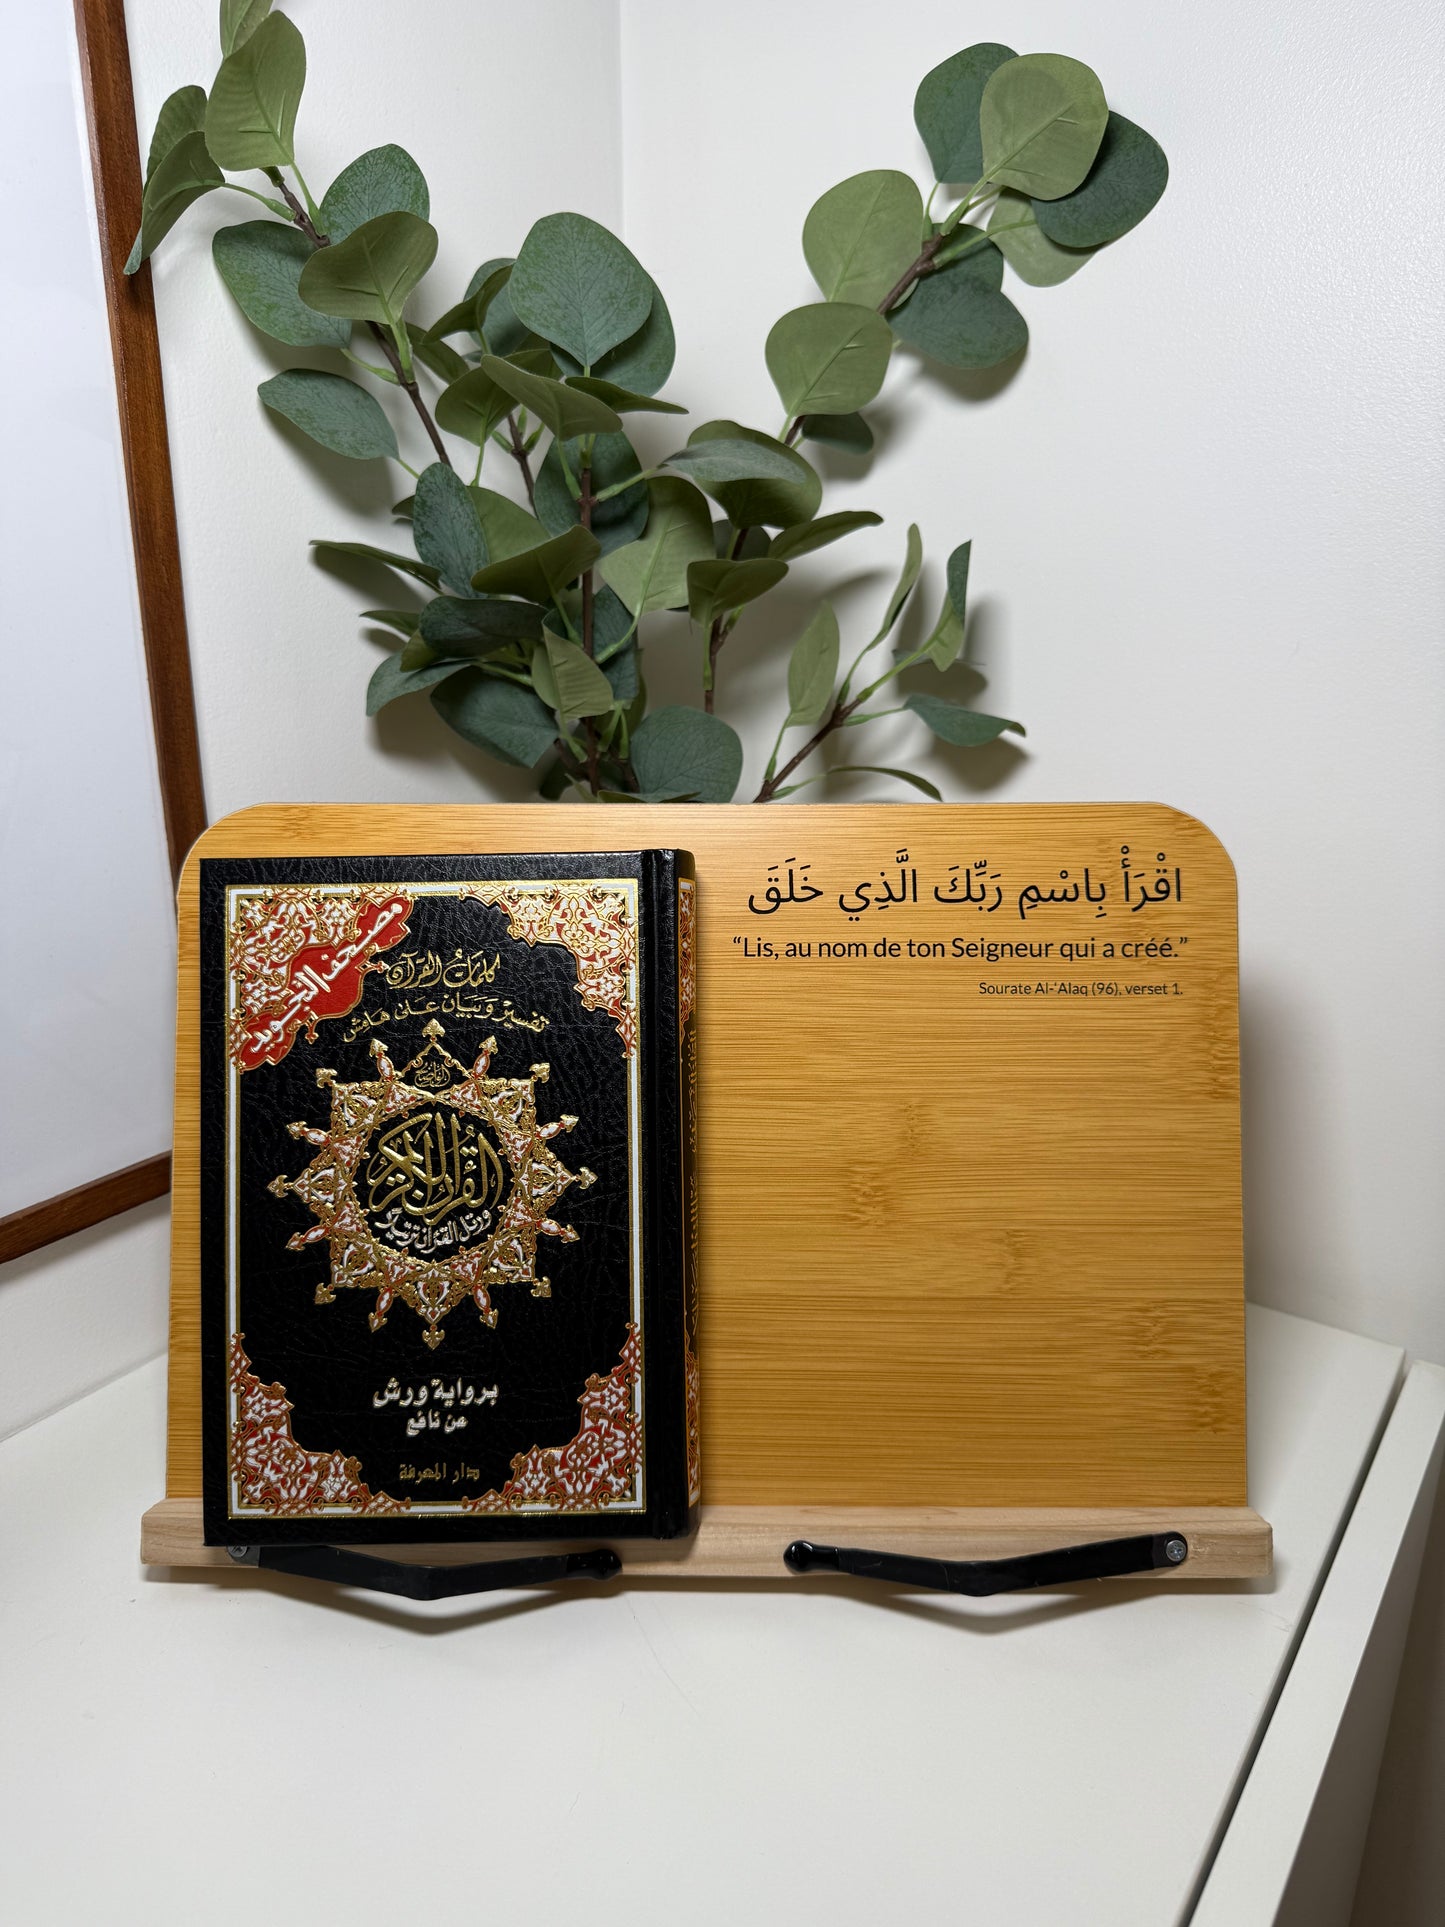 مصحف التجويد
كلمات القرآن
تفسير وبيان على هامش
القرآن الكريم
ورتل القرآن ترتيلا
برواية ورش
عن نافع
دار المعرفة
اقْرَأْ بِاسْمِ رَبِّكَ الَّذِي خَلَقَ
“Lis, au nom de ton Seigneur qui a créé.”
Sourate Al-‘Alaq (96), verset 1.